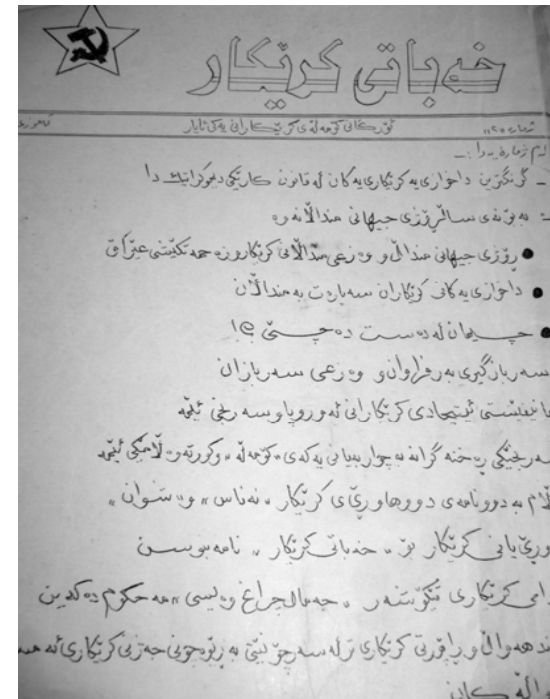 خەباتی کرێکار
ژمارە
ئۆرگانی کۆمەڵەی کرێکارانی یەکی ئایار
لەم ژمارەیەدا :ـ
ـ گرنگترین داخوازی یە کرێکاری یەکان لە قانون کارێکی دیموکراتیک دا
ـ بە بۆنەی ساڵڕۆژی جیهانی منداڵانەوە
● رۆژی جیهانی منداڵ و وەزعی منداڵانی کرێکار و زەحمەتکێشی عێراقی
● داخوازی یەکانی کرێکاران سەبارەت بە منداڵان
● چیمان لە دەست دەچێ ؟!
سەربازگیری بەرفراوان و وەزعی سەربازان
مانیفێستی ئیتیحادی کرێکارانی ئەوروپا و سەرنجی ئێمە
سەرنجێکی رەخنە گرانە بە چوار بەیانی یەکەی «کۆمەڵە» وکورتە وەڵامێکی ئێمە
وەڵام بە دوو نامەی دوو هاوڕێی کرێکار «نەناس» و «شوان»
هاوڕێیانی کرێکار بۆ «خەباتی کرێکار» نامە بنوسن
کرێکاری تێکۆشەر «جەمال چراغ وەیسی» مەحکوم دەکەین
هەواڵ و راپۆرتی کرێکاری تر لە سەر